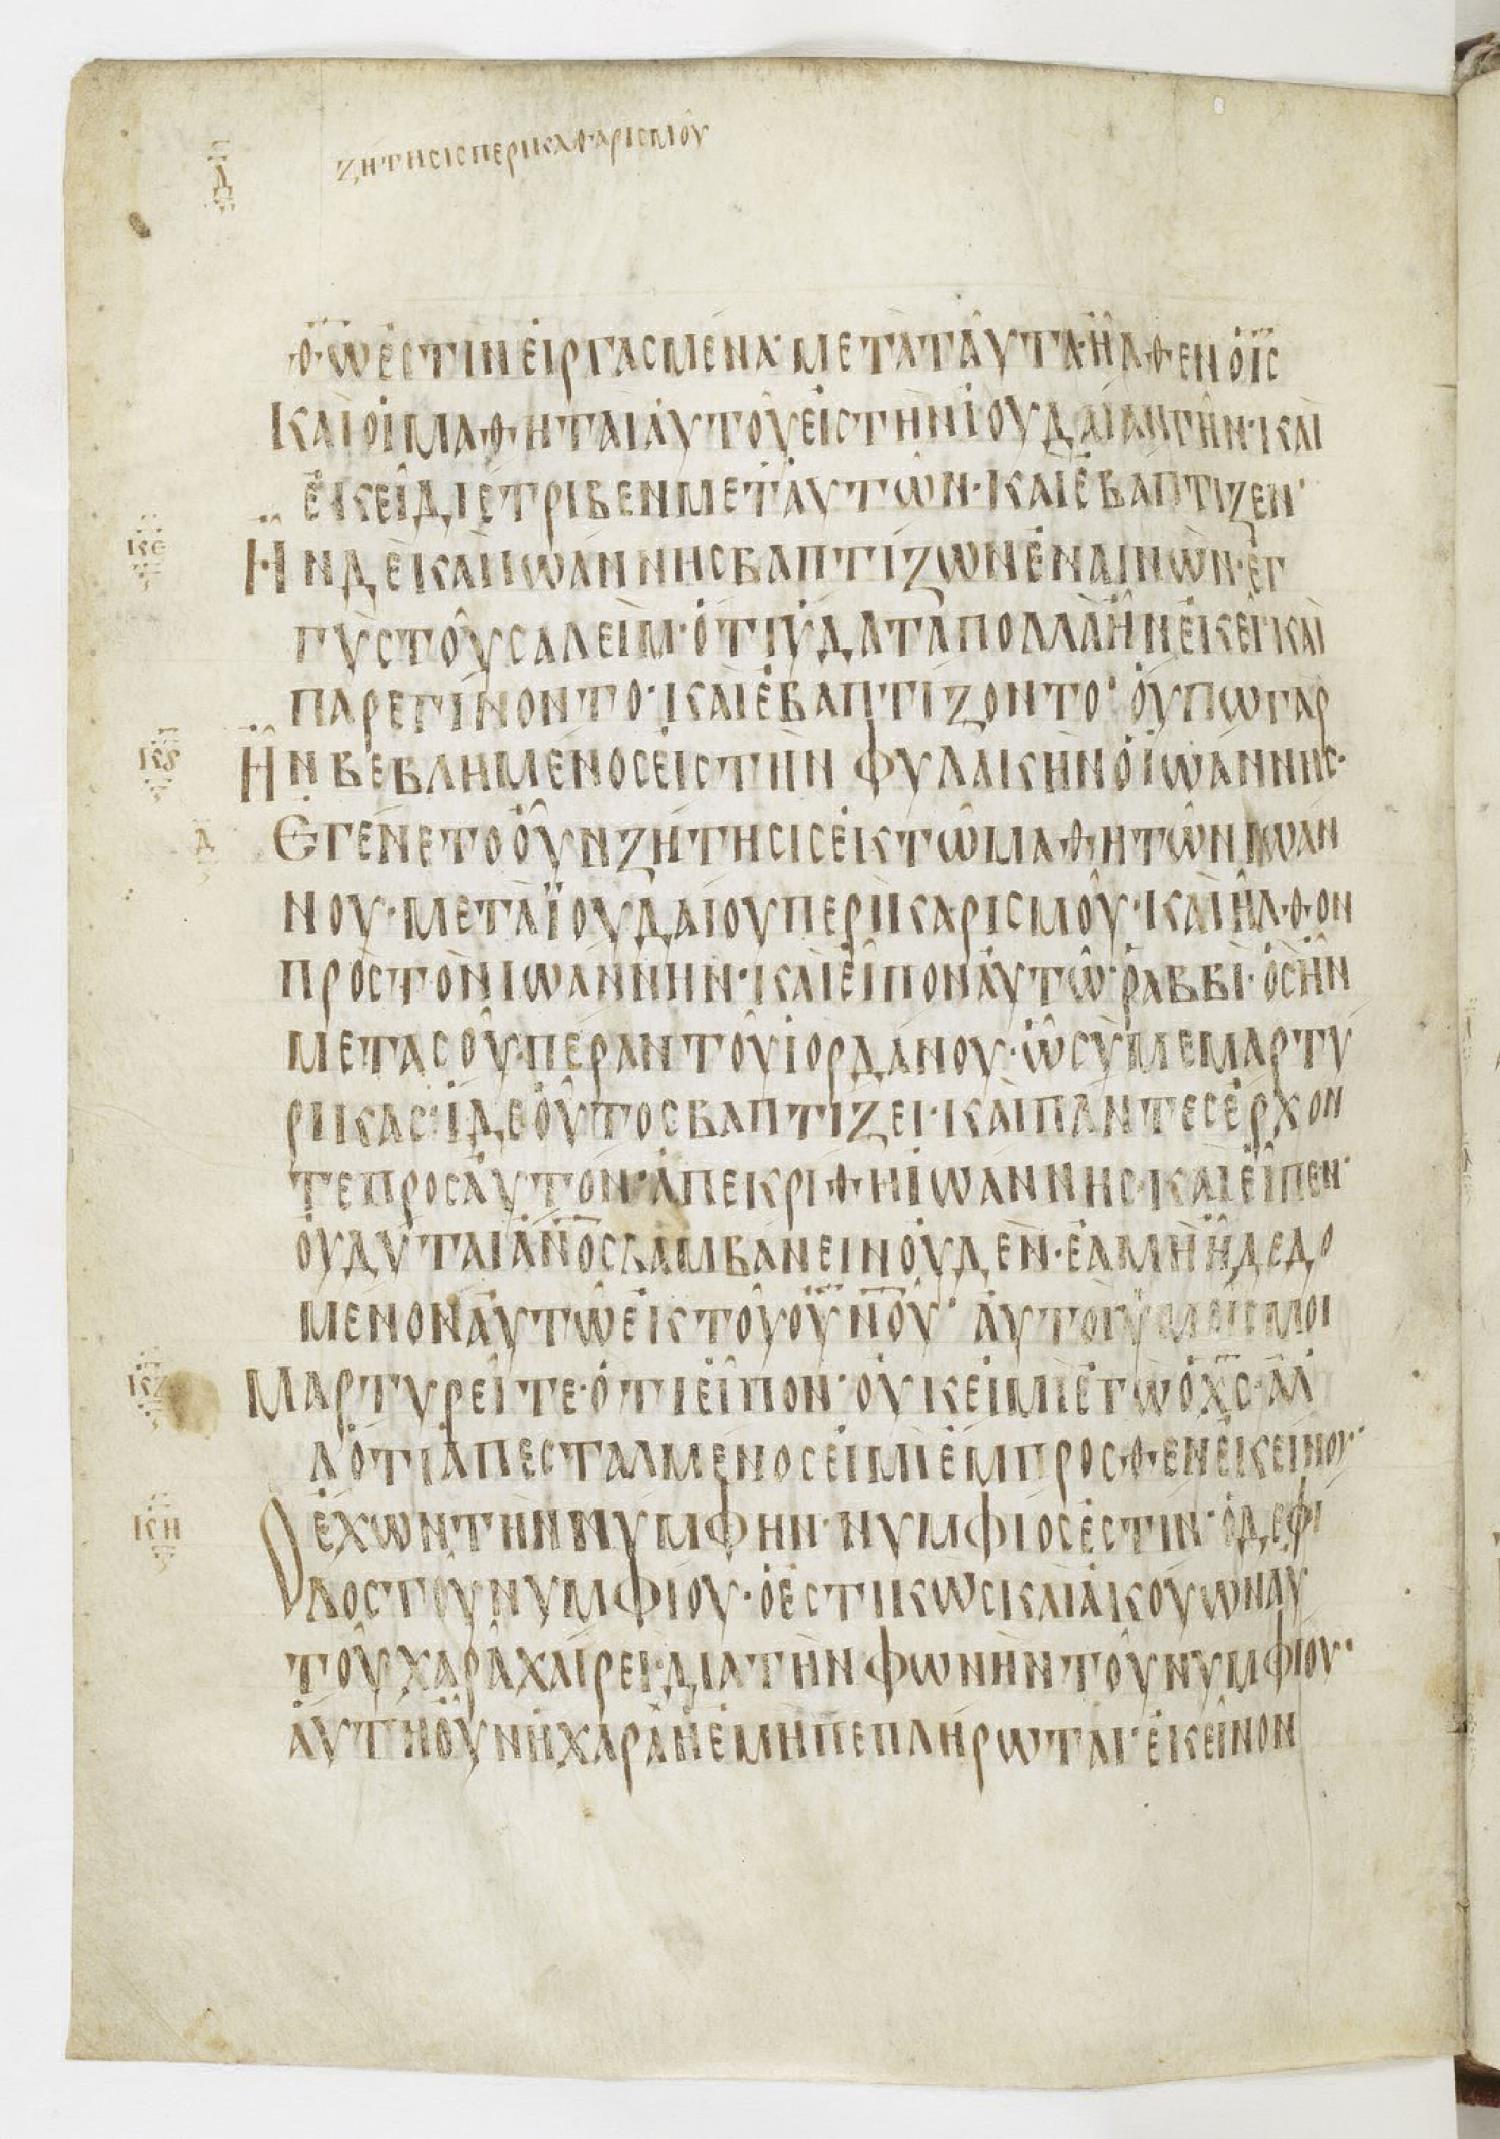 Δ
ζητησισπερικαθαρισμου
θ̅ω̅εστινειργασμενα·μεταταυτα·ηλθενοι̅σ̅
καιοιμαθηταιαυτουειστηνιουδαιανγην·και
εκειδιετριβενμεταυτων·καιεβαπτιζεν·
κε
Ηνδεκαιιωαννησβαπτιζωνεναινων·εγ
γυστουσαλειμ·οτιυδαταπολλαηνεκει·και
παρεγινοντο·καιεβαπτιζοντο·ουπωγαρ
κϛ
Ηνβεβλημενοσειστηνφυλακηνοιωαννησ·
Δ
Εγενετοουνζητησισεκτωμαθητωνιωαν
νου·μεταϊουδαιουπερικαρισμου·καιηλθον
προστονιωαννην·καιειποναυτω·ραββι·οσην
μετασου·περαντουιορδανου·ωσυμεμαρτυ
ρικασ·ιδεουτοσβαπτιζει·καιπαντεσερχον
τεπροσαυτον·απεκριθηιωαννησ·καιειπεν·
ουδυταια̅ν̅ο̅σλαμβανεινουδεν·εαμηηδεδο
μενοναυτωεκτουου̅ν̅ο̅υ̅·αυτοιυμεισμοι
κζ
Μαρτυρειτε·οτιειπον·ουκειμιεγωοχ̅σ̅·αλ
λοτιαπεσταλμενοσειμιεμπροσθενεκεινου·
κη
Οεχωντηννυμφην·νυμφιοσεστιν·οδεφι
λοστουνυμφιου·οεστικωσκαιακουωναυ
τουχαραχαιρει·διατηνφωνηντουνυμφιου·
αυτηουνηχαραηεμηπεπληρωται·εκεινον